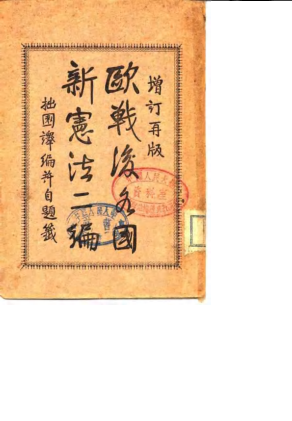 增訂再版
歐戰後各國
新憲法二編
拙園譯編并自題籤